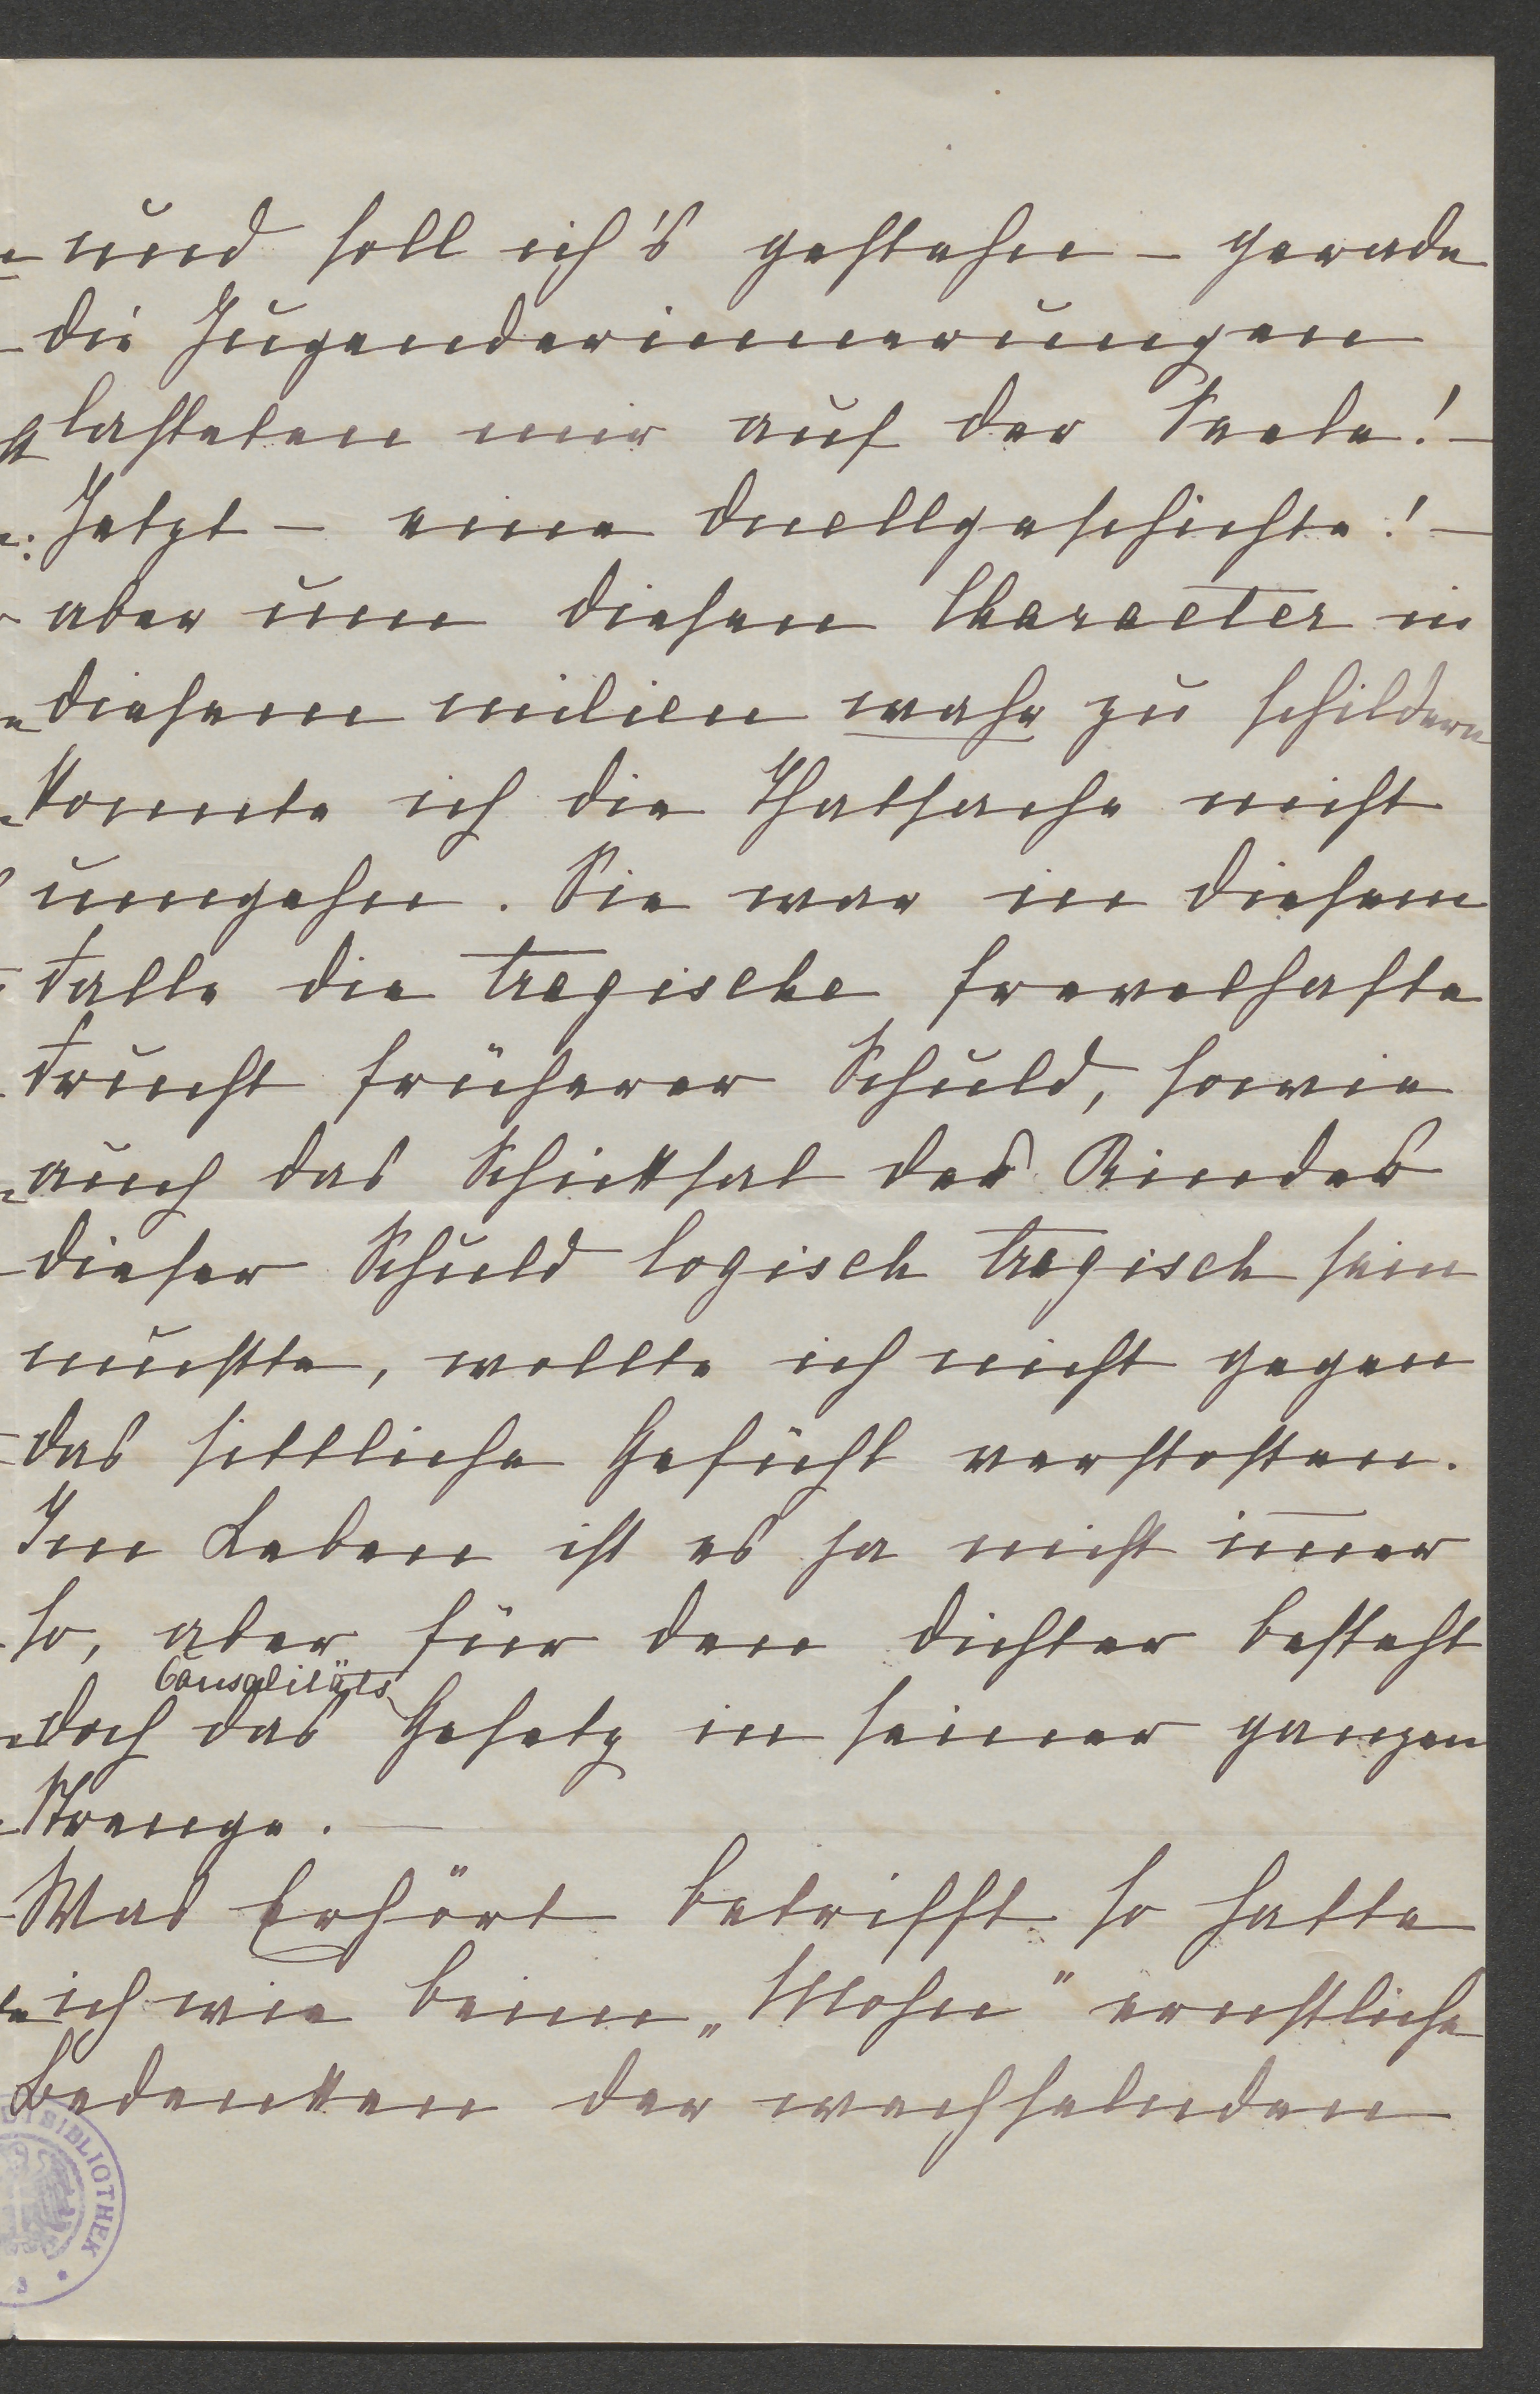 und soll ich's gestehn – gerade
die Jugenderinnerungen
lasteten mir auf der Seele! –
Jetzt – eine Duellgeschichte! –
aber um diesen Character in
diesem milieu wahr zu schildern
konnte ich die Thatsache nicht
umgehn. Sie war in diesem
Falle die tragische frevelhafte
Frucht früherer Schuld, sowie
auch das Schicksal des Kindes
dieser Schuld logisch tragisch sein
musste, wollte ich nicht gegen
das sittliche Gefühl verstossen.
Im Leben ist es ja nicht im̅er
so, aber für den Dichter besteht
Causalitäts
doch das Gesetz in seiner ganzen
Strenge. –
Was Erhört betrifft so hatte
ich wie beim „Mohn" ernstliche
Bedenken der wechselnden
BIBLIOTHEK